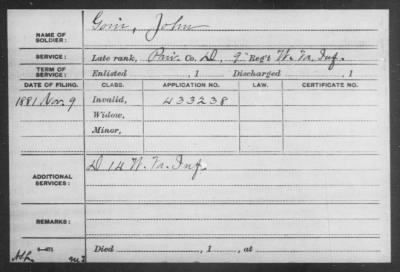 NAME OF SOLDIER: Goin, John
SERVICE: Late rank, Priv. Co. D, 9" Reg't W. Va. Inf.
TERM OF SERVICE: Enlisted , 1 Discharged , 1
DATE OF FILING. CLASS. APPLICATION NO. LAW. CERTIFICATE NO.
1881, Nov. 9 Invalid, 433238
Widow,
Minor,
ADDITIONAL SERVICES: D 14 W. Va. Inf.
REMARKS:
Died , 1 , at